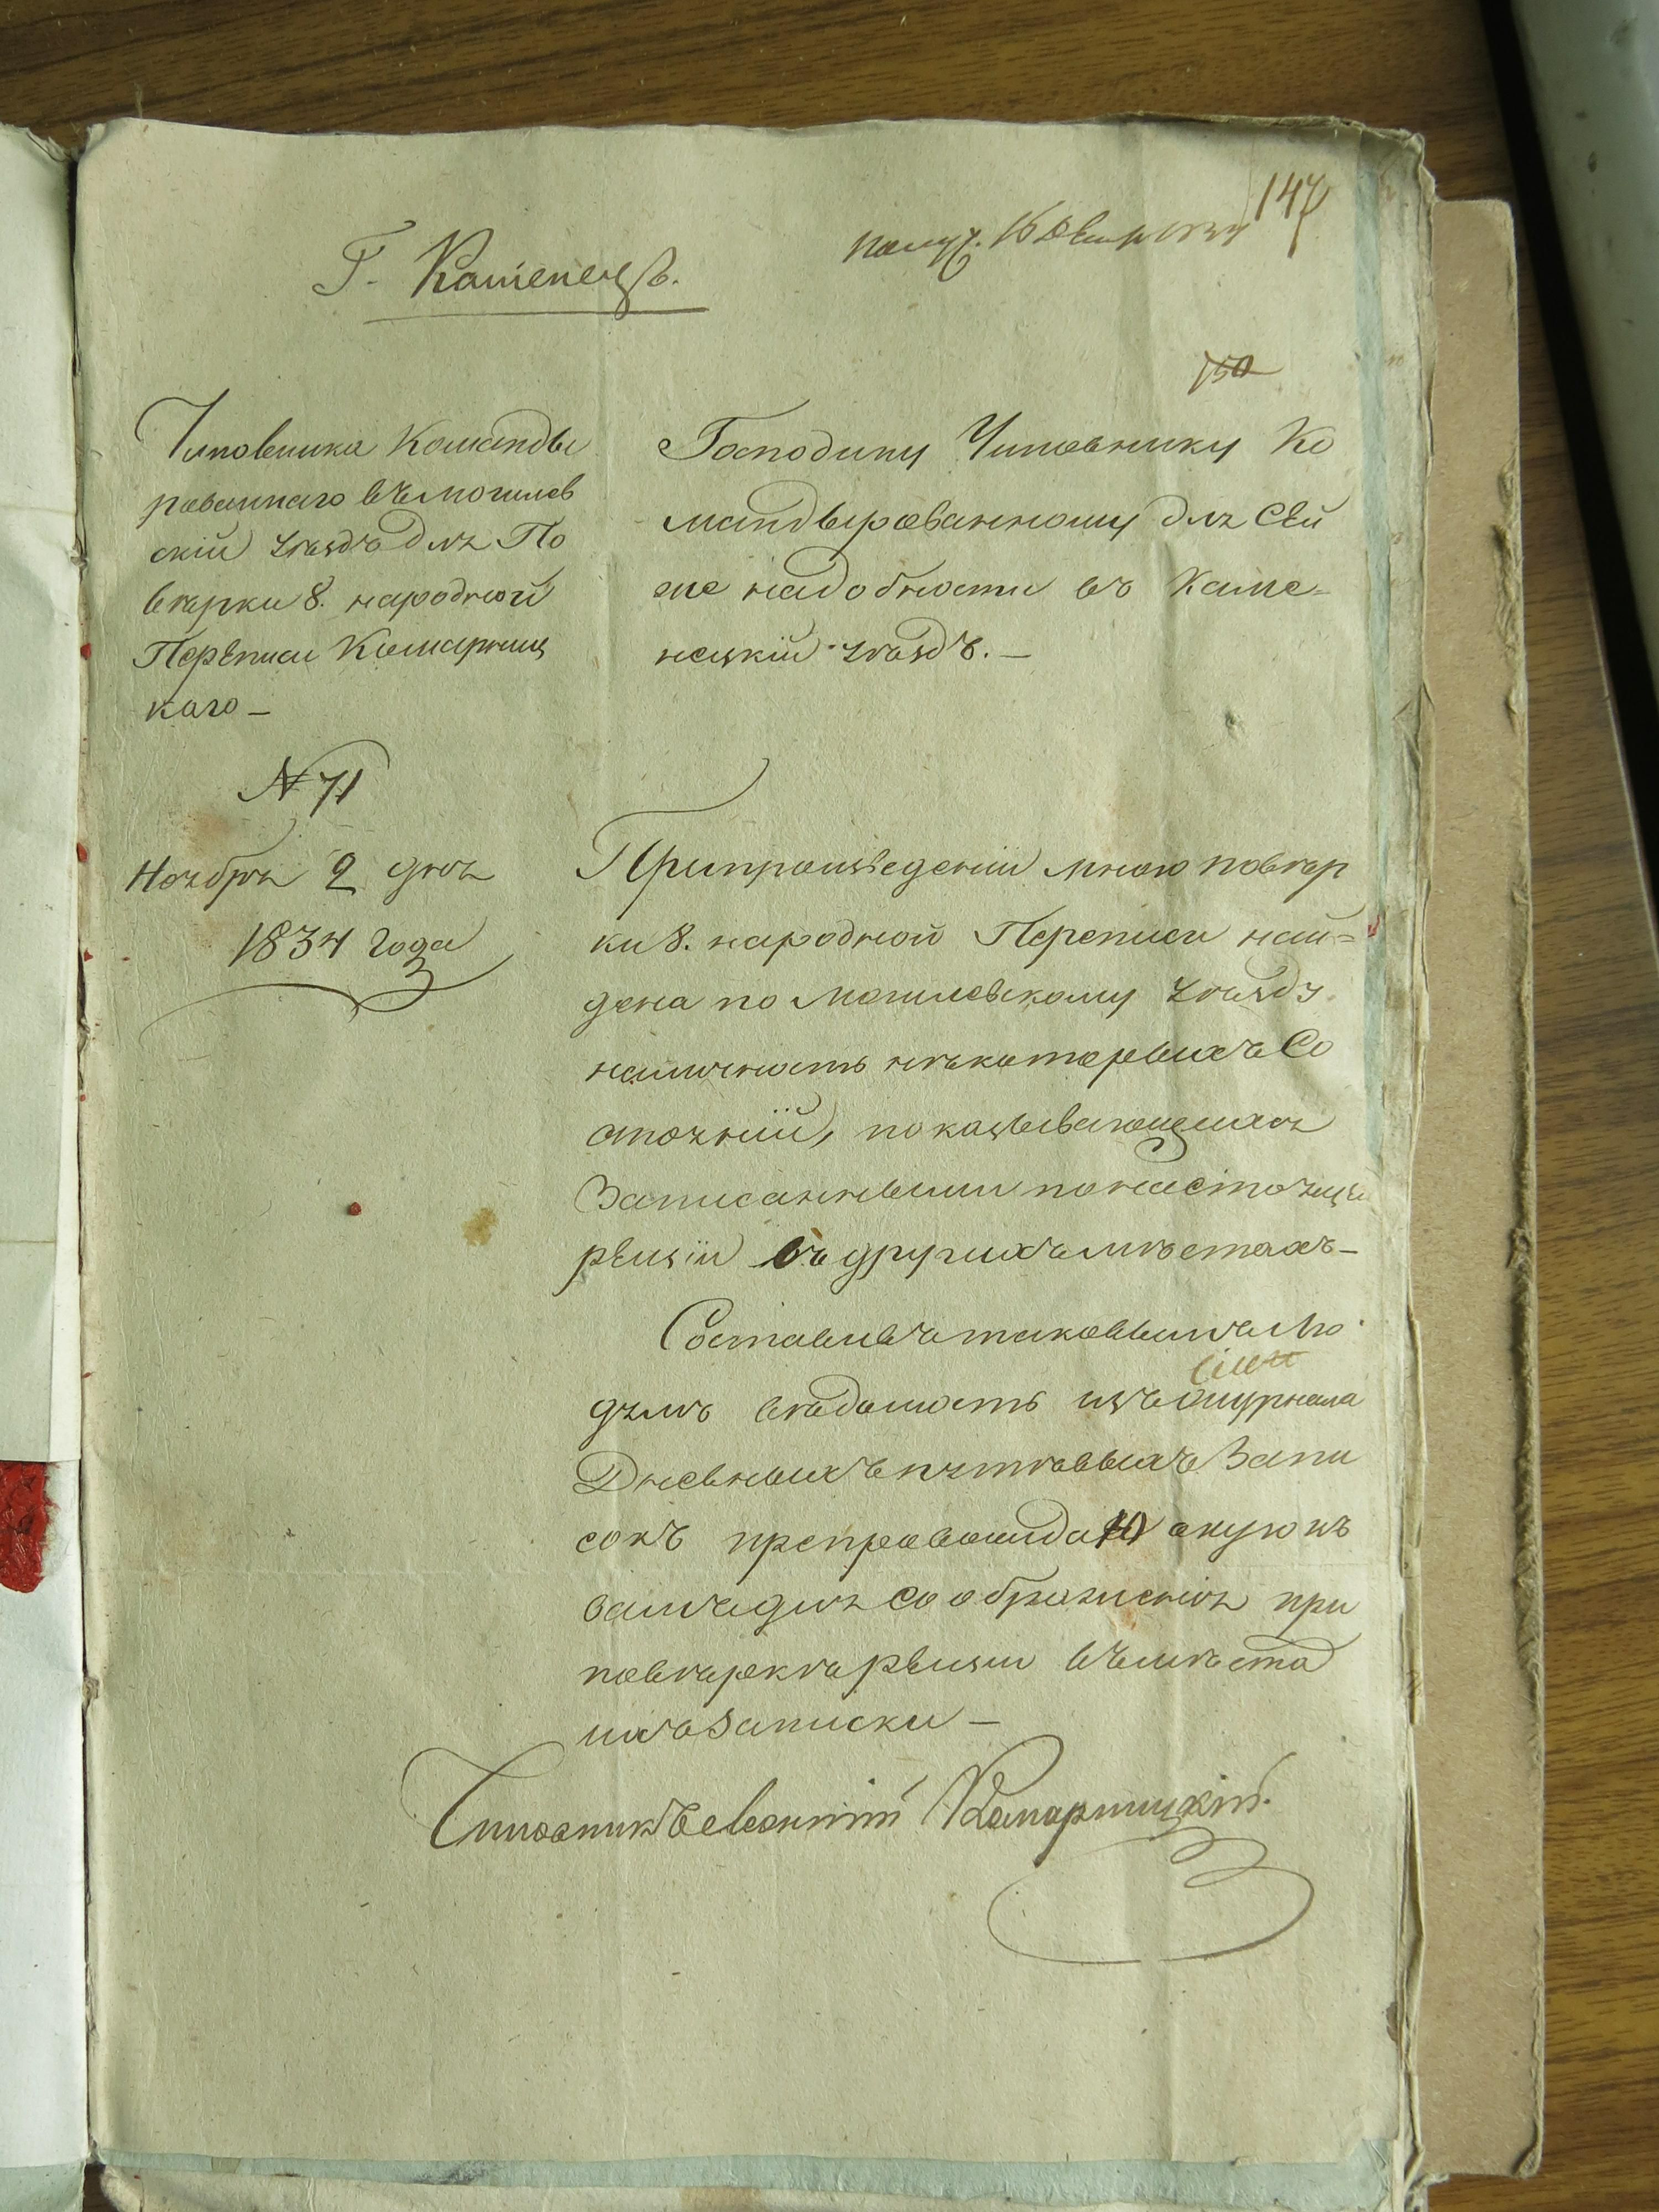 147
Г. Каменецъ.
150
Чиновника Команды
рованнаго въ Могилев
скій уѣздъ для По
вѣрки 8. народной
Переписи Комарниц
каго —
N 71
Ноября 2 дня
1834 года
Господину Чиновнику Ко
мандырованному для Сей
же надобности въ Каме=
нецкій уѣздъ. —
При произведеніи мною повѣр
ки 8. народной Переписи най=
дена по Могилевскому уѣзду
наличность нѣкоторыхъ Со
стояній, показывающихся
Записанными по настоящей
ревизіи въ другихъ мѣстахъ —
Составивъ таковымъ лю
дямъ вѣдомость изъ журнала
Дневныхъ путевыхъ Запи
сокъ препровождаю оную къ
вамъ для соображенія при
повѣркѣ ревизіи въ мѣста
ихъ Записки —
Чиновникъ Комарницкій.